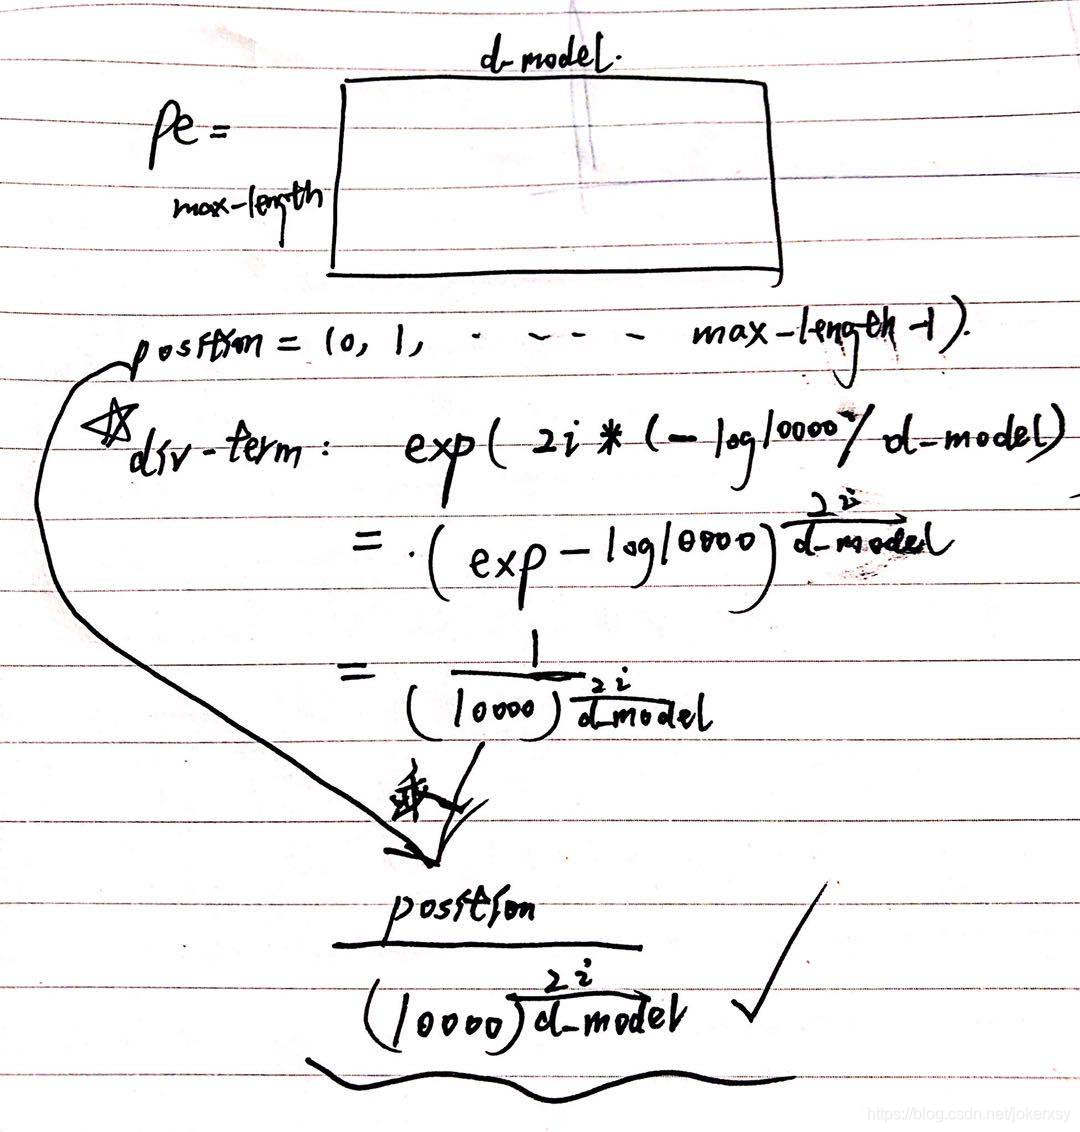 d-model.
pe =
max-length
position = (0, 1, · - - - - max-length-1).
☆ div-term: exp( 2i * (-log10000 / d-model)
= ·(exp-log10000)^(2i/d-model)
= 1/(10000)^(2i/d-model)
乘
position
(10000)^(2i/d-model) ✓
https://blog.csdn.net/jokerxsy